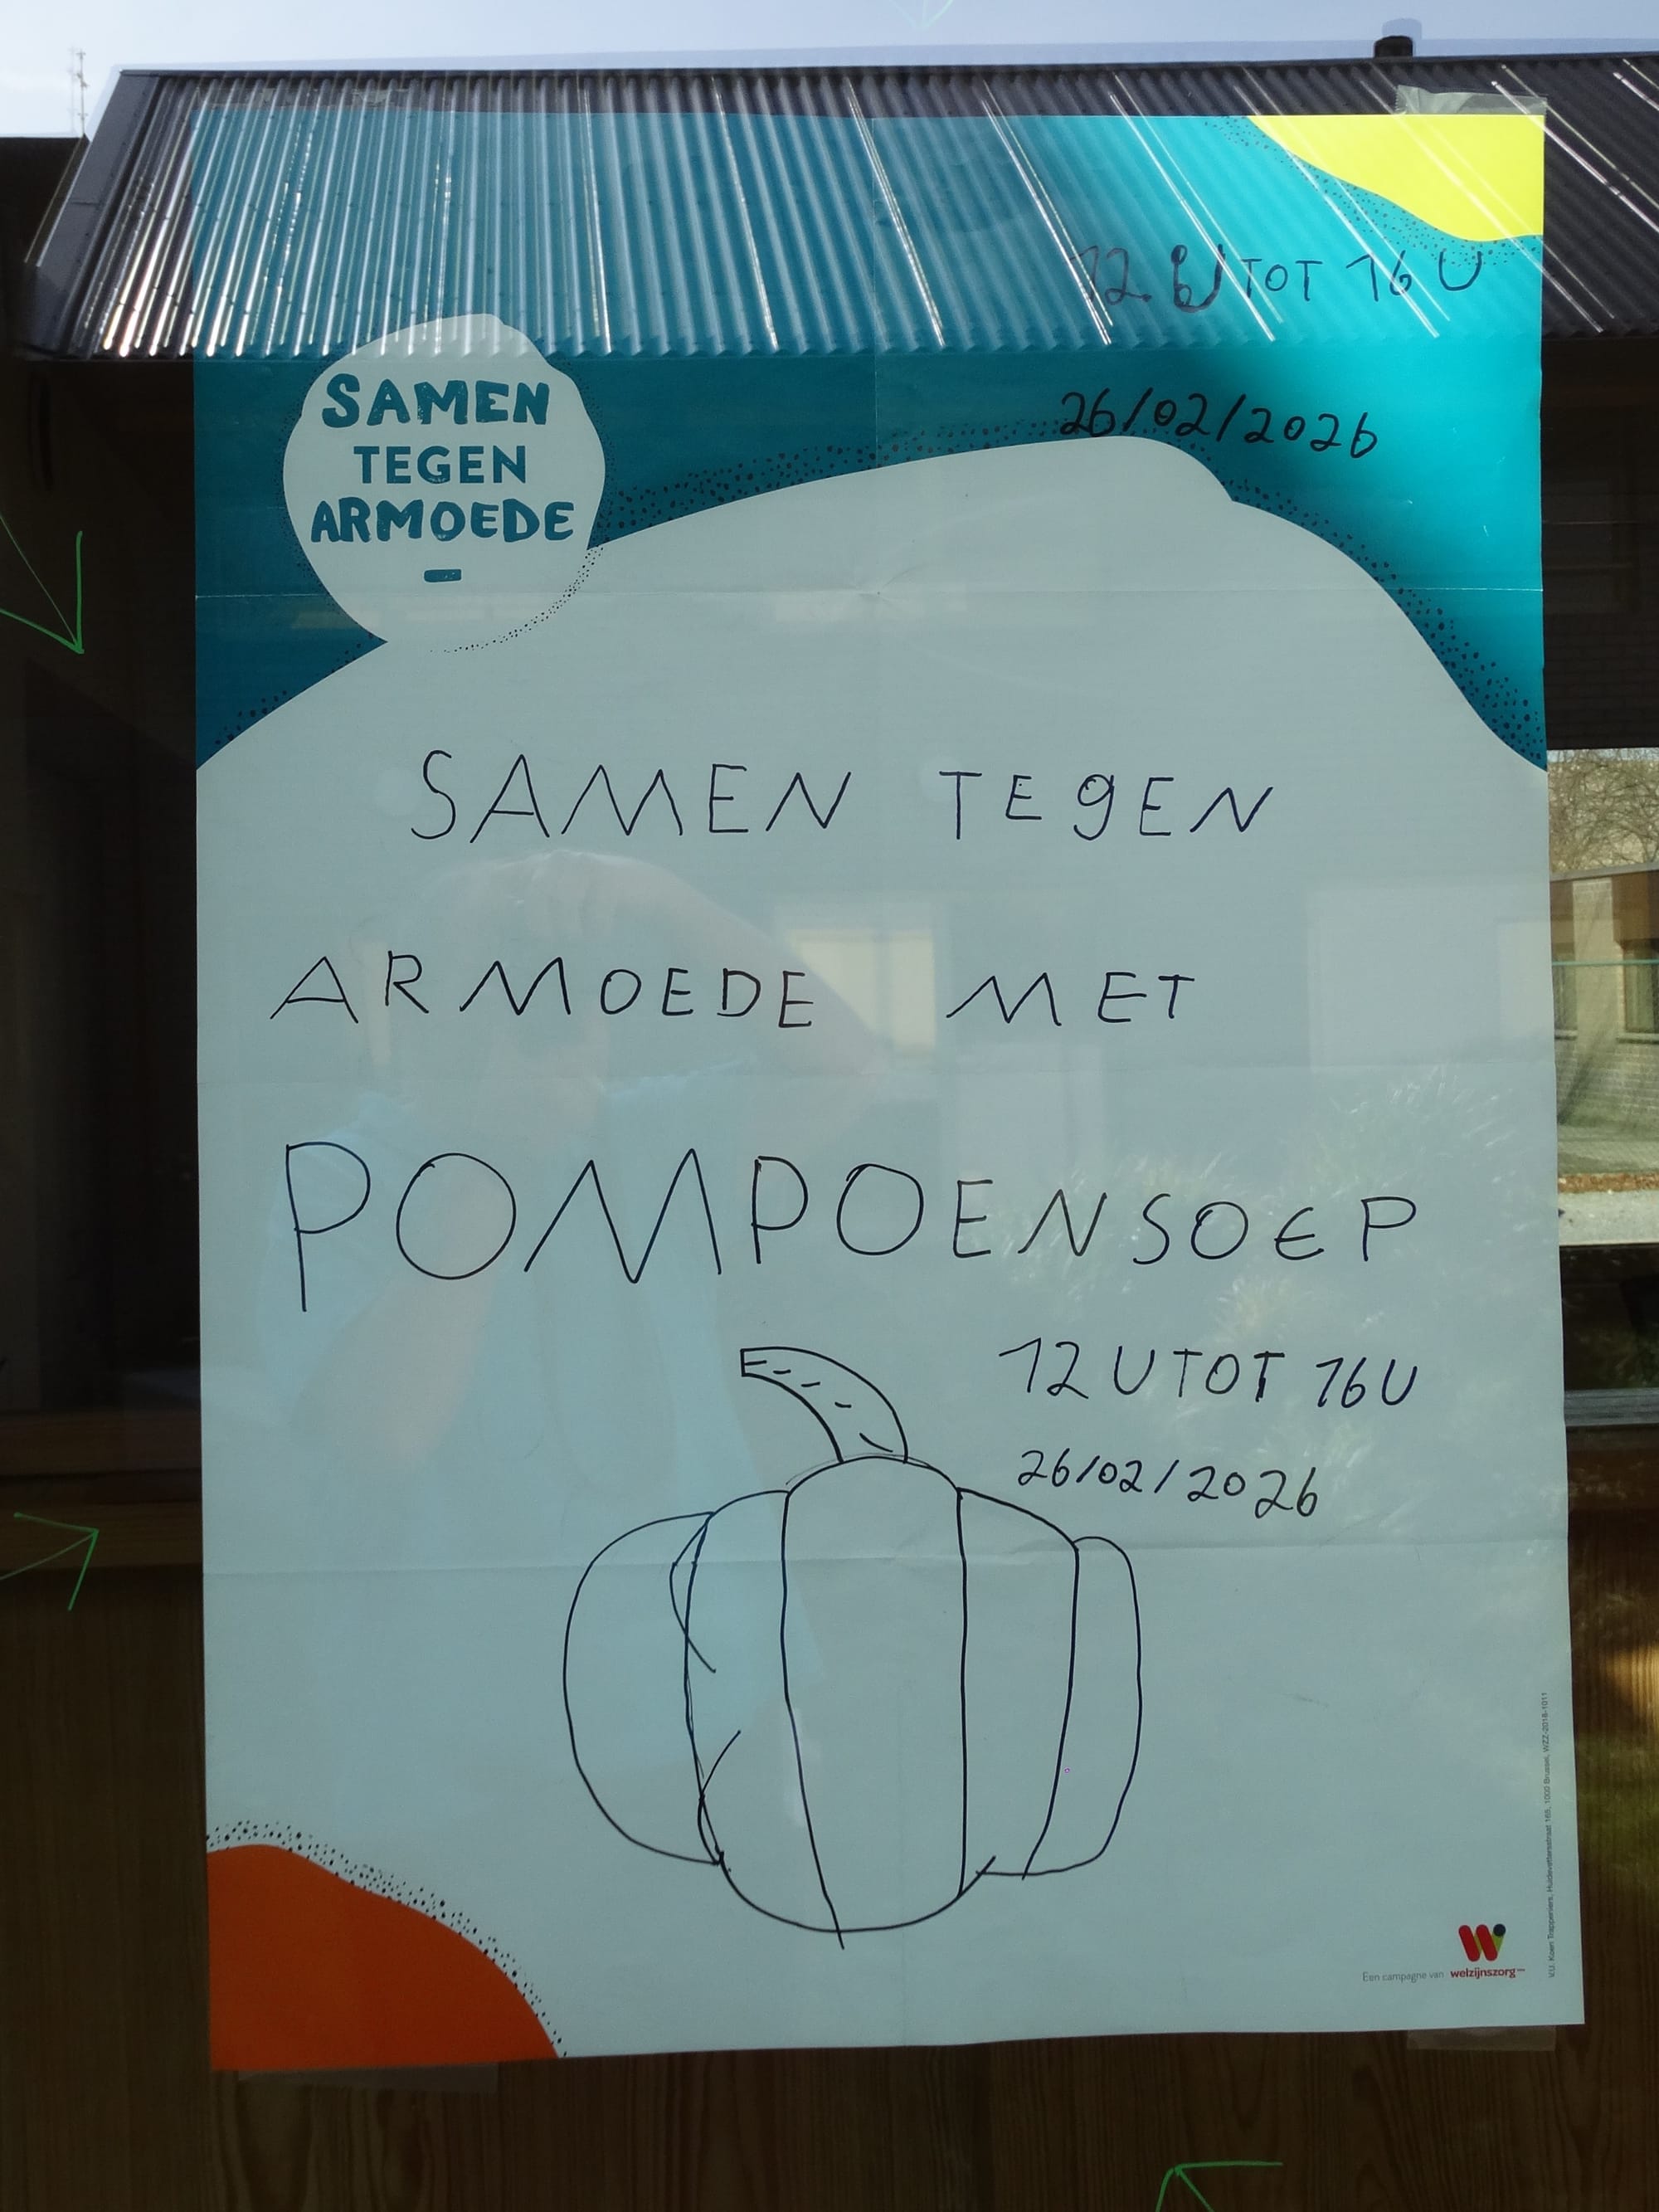 12 U TOT 16 U
26/02/2026
SAMEN
TEGEN
ARMOEDE
SAMEN TEGEN
ARMOEDE MET
POMPOENSOEP
12 U TOT 16 U
26/02/2026
Een campagne van welzijnszorg
V.U. Koen Trappeniers, Huidevettersstraat 165, 1000 Brussel, WZZ-2018-1011